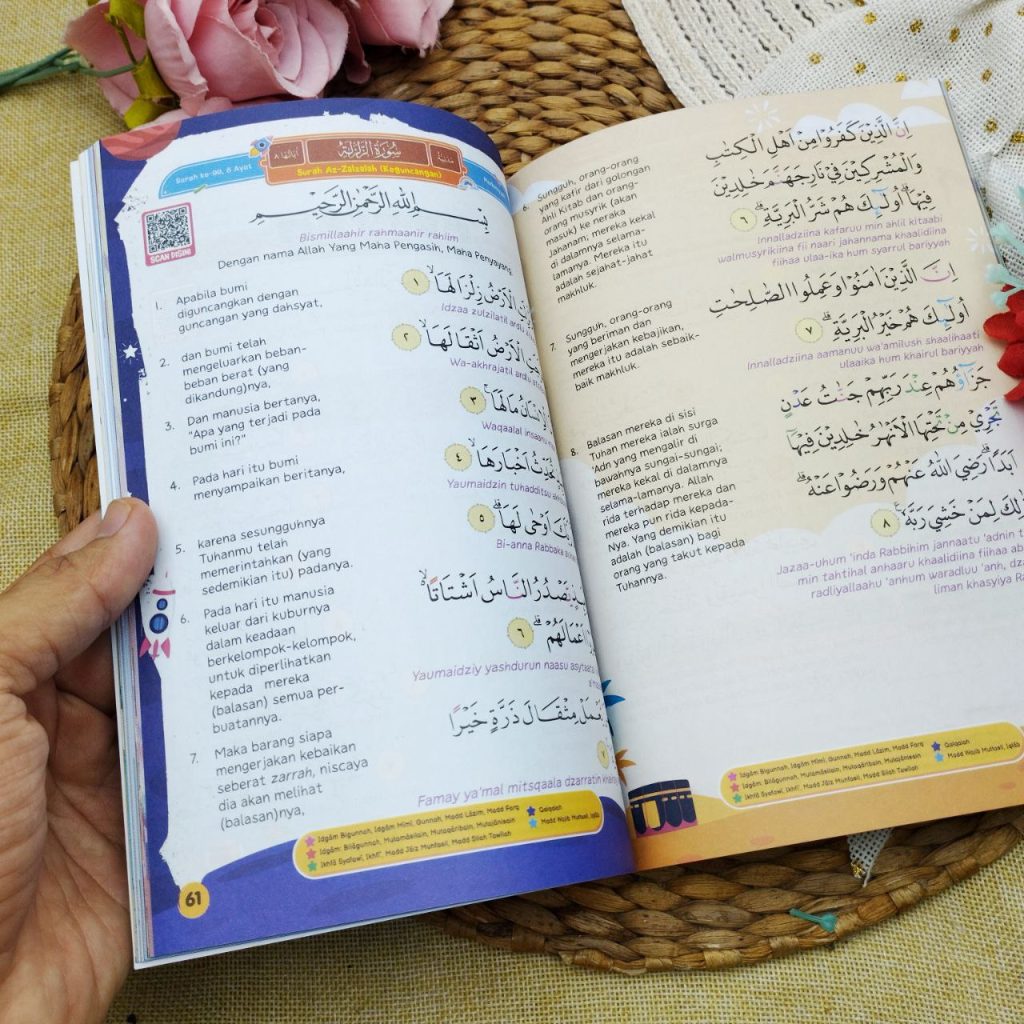 Surah ke-99, 8 Ayat
سُوْرَةُ الزَّلْزَلَةِ
Surah Az-Zalzalah (Keguncangan)
SCAN DISINI
بِسْمِ اللّٰهِ الرَّحْمٰنِ الرَّحِيْمِ
Bismillaahir rahmaanir rahiim
Dengan nama Allah Yang Maha Pengasih, Maha Penyayang.
1. Apabila bumi
diguncangkan dengan
guncangan yang dahsyat,
الْاَرْضُ زِلْزَالَهَاۙ ١
Idzaa zulzilatil
2. dan bumi telah
mengeluarkan beban-
beban berat (yang
dikandung)nya,
الْاَرْضُ اَثْقَالَهَاۙ ٢
Wa-akhrajatil
3. Dan manusia bertanya,
"Apa yang terjadi pada
bumi ini?"
مَا لَهَاۚ ٣
Waqaalal
4. Pada hari itu bumi
menyampaikan beritanya,
اَخْبَارَهَاۙ ٤
Yaumaidzin tuhadditsu
5. karena sesungguhnya
Tuhanmu telah
memerintahkan (yang
sedemikian itu) padanya.
اَوْحٰى لَهَاۗ ٥
Bi-anna Rabbaka
6. Pada hari itu manusia
keluar dari kuburnya
dalam keadaan
berkelompok-kelompok,
untuk diperlihatkan
kepada mereka
(balasan) semua per-
buatannya.
يَّصْدُرُ النَّاسُ اَشْتَاتًا ەۙ
اَعْمَالَهُمْۗ ٦
Yaumaidziy yashdurun naasu
7. Maka barang siapa
mengerjakan kebaikan
seberat zarrah, niscaya
dia akan melihat
(balasan)nya,
مِثْقَالَ ذَرَّةٍ خَيْرًا
Famay ya'mal mitsqaala dzarratin
Idgâm Bigunnah, Idgâm Mimi, Gunnah, Madd Lâzim, Madd Farq
Qalqalah
Idgâm: Bilâgunnah, Mutamâsilain, Mutaqâribain, Mutajânisain
Madd Wajib Muttasil, Iqlâb
Ikhfâ Syafawi, Ikhfâ', Madd Jâ'iz Munfasil, Madd Silah Tawîlah
61
6. Sungguh, orang-orang
yang kafir dari golongan
Ahli Kitab dan orang-
orang musyrik (akan
masuk) ke neraka
Jahanam, mereka kekal
di dalamnya selama-
lamanya. Mereka itu
adalah sejahat-jahat
makhluk.
اِنَّ الَّذِيْنَ كَفَرُوْا مِنْ اَهْلِ الْكِتٰبِ
وَالْمُشْرِكِيْنَ فِيْ نَارِ جَهَنَّمَ خٰلِدِيْنَ
فِيْهَاۗ اُولٰۤىِٕكَ هُمْ شَرُّ الْبَرِيَّةِۗ ٦
Innalladziina kafaruu min ahlil kitaabi
walmusyrikiina fii naari jahannama khaalidiina
fiihaa ulaa-ika hum syarrul bariyyah
7. Sungguh, orang-orang
yang beriman dan
mengerjakan kebajikan,
mereka itu adalah sebaik-
baik makhluk.
اِنَّ الَّذِيْنَ اٰمَنُوْا وَعَمِلُوا الصّٰلِحٰتِ
اُولٰۤىِٕكَ هُمْ خَيْرُ الْبَرِيَّةِۗ ٧
Innalladziina aamanuu wa'amilush shaalihaati
ulaaika hum khairul bariyyah
8. Balasan mereka di sisi
Tuhan mereka ialah surga
'Adn yang mengalir di
bawahnya sungai-sungai;
mereka kekal di dalamnya
selama-lamanya. Allah
rida terhadap mereka dan
mereka pun rida kepada-
Nya. Yang demikian itu
adalah (balasan) bagi
orang yang takut kepada
Tuhannya.
جَزَاۤؤُهُمْ عِنْدَ رَبِّهِمْ جَنّٰتُ عَدْنٍ
تَجْرِيْ مِنْ تَحْتِهَا الْاَنْهٰرُ خٰلِدِيْنَ فِيْهَآ
اَبَدًاۗ رَضِيَ اللّٰهُ عَنْهُمْ وَرَضُوْا عَنْهُۗ
لِمَنْ خَشِيَ رَبَّهٗ ٨
Jazaa-uhum 'inda Rabbihim jannaatu 'adnin
min tahtihal anhaaru khaalidiina fiihaa
radliyallaahu 'anhum waradluu 'anh,
liman khasyiya
Idgâm Bigunnah, Idgâm Mimi, Gunnah, Madd Lâzim, Madd Farq
Qalqalah
Idgâm: Bilâgunnah, Mutamâsilain, Mutaqâribain, Mutajânisain
Madd Wajib Muttasil, Iqlâb
Ikhfâ Syafawi, Ikhfâ', Madd Jâ'iz Munfasil, Madd Silah Tawîlah